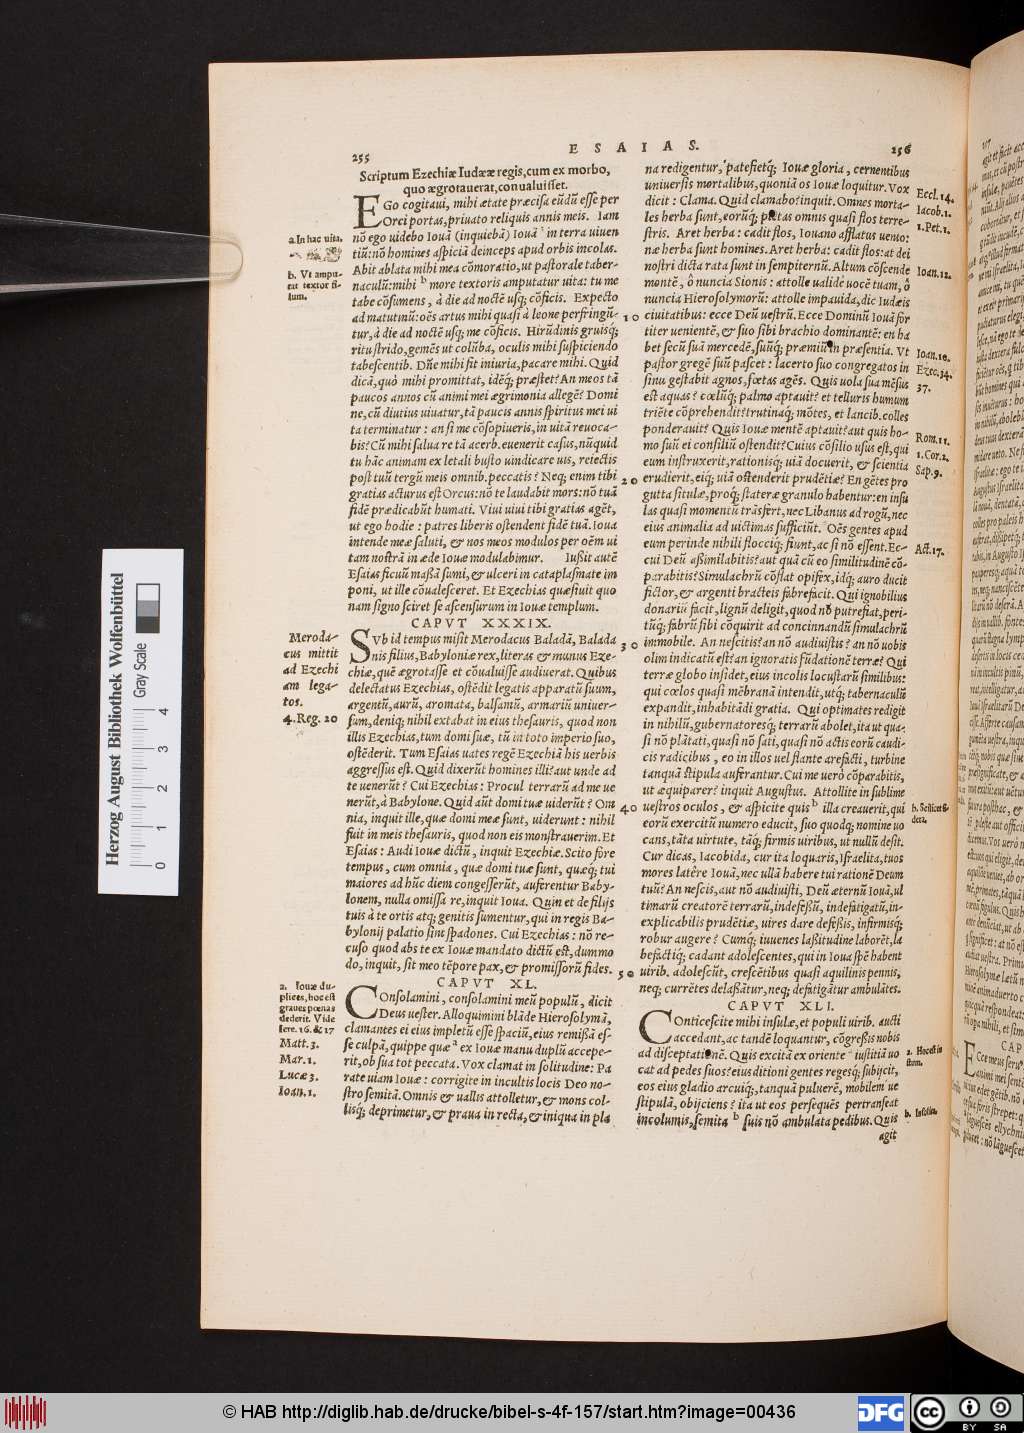 ESAIAS.
255
256
Scriptum Ezechiæ Iudææ regis, cum ex morbo,
quo ægrotauerat, conualuisset.
EGo cogitaui, mihi ætate præcisa eūdū esse per
Orci portas, priuato reliquis annis meis. Iam
nō ego uidebo Iouā (inquiebā) Iouā in terra uiuen
tiū: nō homines aspiciā deinceps apud orbis incolas.
Abit ablata mihi mea cōmoratio, ut pastorale taber-
naculū: mihi b more textoris amputatur uita: tu me
tabe cōsumens, à die ad noctē usq; cōficis. Expecto
ad matutinū: oēs artus mihi quasi à leone perfringū-
tur, à die ad noctē usq; me cōficis. Hirūdinis gruisq;
ritu strido, gemēs ut colūba, oculis mihi suspiciendo
tabescentib. Dñe mihi fit iniuria, pacare mihi. Quid
dicā, quò mihi promittat, idēq; præstet? An meos tā
paucos annos cū animi mei ægrimonia allegē? Domi
ne, cū diutius uiuatur, tā paucis annis spiritus mei ui
ta terminatur: an si me cōsopiueris, in uitā reuoca-
bis? Cū mihi salua re tā acerb. euenerit casus, nūquid
tu hāc animam ex letali busto uindicare uis, reiectis
post tuū tergū meis omnib. peccatis? Neq; enim tibi
gratias acturus est Orcus: nō te laudabit mors: nō tuā
fidē prædicabūt humati. Viui uiui tibi gratias agēt,
ut ego hodie: patres liberis ostendent fidē tuā. Ioua
intende meæ saluti, & nos meos modulos per oēm ui
tam nostrā in æde Iouæ modulabimur. Iußit autē
Esaias ficuū maßā sumi, & ulceri in cataplasmate im
poni, ut ille cōualesceret. Et Ezechias quæsiuit quo
nam signo sciret se ascensurum in Iouæ templum.
CAPVT XXXIX.
SVb id tempus misit Merodacus Baladā, Balada
nis filius, Babyloniæ rex, literas & munus Eze-
chiæ, quē ægrotasse et cōualuisse audiuerat. Quibus
delectatus Ezechias, ostēdit legatis apparatū suum,
argentū, aurū, aromata, balsamū, armariū uniuer-
sum, deniq; nihil extabat in eius thesauris, quod non
illis Ezechias, tum domi suæ, tū in toto imperio suo,
ostēderit. Tum Esaias uates regē Ezechiā his uerbis
aggressus est. Quid dixerūt homines illi? aut unde ad
te uenerūt? Cui Ezechias: Procul terrarū ad me ue
nerūt, à Babylone. Quid aūt domi tuæ uiderūt? Om
nia, inquit ille, quæ domi meæ sunt, uiderunt: nihil
fuit in meis thesauris, quod non eis monstrauerim. Et
Esaias: Audi Iouæ dictū, inquit Ezechiæ. Scito fore
tempus, cum omnia, quæ domi tuæ sunt, quæq; tui
maiores ad hūc diem congesserūt, auferentur Baby-
lonem, nulla omissa re, inquit Ioua. Quin et de filijs
tuis à te ortis atq; genitis sumentur, qui in regis Ba-
bylonij palatio sint spadones. Cui Ezechias: nō re-
cuso quod abs te ex Iouæ mandato dictū est, dummo
do, inquit, sit meo tēpore pax, & promissorū fides.
CAPVT XL.
COnsolamini, consolamini meū populū, dicit
Deus uester. Alloquimini blādè Hierosolymā,
clamantes ei eius impletū esse spaciū, eius remißā es-
se culpā, quippe quæ a ex Iouæ manu duplū accepe-
rit, ob sua tot peccata. Vox clamat in solitudine: Pa
rate uiam Iouæ: corrigite in incultis locis Deo no-
stro semitā. Omnis & uallis attolletur, & mons col-
lisq; deprimetur, & praua in recta, & iniqua in pla
a. In hac uita.
b. Vt ampu-
tat textor fi-
lum.
Meroda-
cus mittit
ad Ezechi
am lega-
tos.
4. Reg. 20
a. Iouæ du-
plices, hoc est
graues pœnas
dederit. Vide
Iere. 16. & 17
Matt. 3.
Mar. 1.
Lucæ 3.
Ioan. 1.
10
20
30
40
50
na redigentur, patefietq; Iouæ gloria, cernentibus
uniuersis mortalibus, quoniā os Iouæ loquitur. Vox
dicit: Clama. Quid clamabo? inquit. Omnes morta-
les herba sunt, eorūq; pietas omnis quasi flos terre-
stris. Aret herba: cadit flos, Iouano afflatus uento:
næ herba sunt homines. Aret herba: cadit flos: at dei
nostri dicta rata sunt in sempiternū. Altum cōscende
montē, ô nuncia Sionis: attolle ualidè uocē tuam, ô
nuncia Hierosolymorū: attolle impauida, dic Iudæis
ciuitatibus: ecce Deū uestrū. Ecce Dominū Iouā for
titer uenientē, & suo sibi brachio dominantē: en ha
bet secū suā mercedē, suūq; præmiū in præsentia. Vt
pastor gregē suū pascet: lacerto suo congregatos in
sinu gestabit agnos, fœtas agēs. Quis uola sua mēsus
est aquas? cœlūq; palmo aptauit? et telluris humum
triēte cōprehendit? trutinaq; mōtes, et lancib. colles
ponderauit? Quis Iouæ mentē aptauit? aut quis ho-
mo suū ei consiliū ostendit? Cuius cōsilio usus est, qui
eum instruxerit, rationisq; uiā docuerit, & scientia
erudierit, eiq; uiā ostenderit prudētiæ? En gētes pro
gutta situlæ, proq; stateræ granulo habentur: en insu
las quasi momentū trāsfert, nec Libanus ad rogū, nec
eius animalia ad uictimas sufficiūt. Oēs gentes apud
eum perinde nihili flocciq; fiunt, ac si nō essent. Ec-
cui Deū aßimilabitis? aut quā cū eo similitudinē cō-
parabitis? Simulachrū cōflat opifex, idq; auro ducit
fictor, & argenti bracteis fabrefacit. Qui ignobilius
donariū facit, lignū deligit, quod nō putrefiat, peri-
tūq; fabrū sibi cōquirit ad concinnandū simulachrū
immobile. An nescitis? an nō audiuistis? an nō uobis
olim indicatū est? an ignoratis fūdationē terræ? Qui
terræ globo insidet, eius incolis locustarū similibus:
qui cœlos quasi mēbranā intendit, utq; tabernaculū
expandit, inhabitādi gratia. Qui optimates redigit
in nihilū, gubernatoresq; terrarū abolet, ita ut qua-
si nō plātati, quasi nō sati, quasi nō actis eorū caudi-
cis radicibus, eo in illos uel flante arefacti, turbine
tanquā stipula auferantur. Cui me uerò cōparabitis,
ut æquiparer? inquit Augustus. Attollite in sublime
uestros oculos, & aspicite quis b illa creauerit, qui
eorū exercitū numero educit, suo quodq; nomine uo
cans, tāta uirtute, tāq; firmis uiribus, ut nullū desit.
Cur dicas, Iacobida, cur ita loquaris, Israelita, tuos
mores latēre Iouā, nec ullā habere tui rationē Deum
tuū? An nescis, aut nō audiuisti, Deū æternū Iouā, ul
timarū creatorē terrarū, indefeßū, indefatigatū, in-
explicabilis prudētiæ, uires dare defeßis, infirmisq;
robur augere? Cumq; iuuenes laßitudine laborēt, la
befactiq; cadant adolescentes, qui in Ioua spē habent
uirib. adolescūt, crescētibus quasi aquilinis pennis,
neq; currētes delaßātur, neq; defatigātur ambulātes.
CAPVT XLI.
COnticescite mihi insulæ, et populi uirib. aucti
accedant, ac tandē loquantur, cōgreßis nobis
ad disceptationē. Quis excitā ex oriente iustitiā uo
cat ad pedes suos? eius ditioni gentes regesq; subijcit,
eos eius gladio arcuiq;, tanquā puluerē, mobilem ue
stipulā, obijciens? ita ut eos persequēs pertranseat
incolumis, semita b suis nō ambulata pedibus. Quis
agit
Eccl. 14.
Iacob. 1.
1. Pet. 1.
Ioan. 12.
Ioan. 10.
Ezec. 34.
37.
Rom. 11.
1. Cor. 2.
Sap. 9.
Act. 17.
b. Scilicet si-
dera.
a. Hoc est iu
stum.
b. Insolita.
Herzog August Bibliothek Wolfenbüttel
Gray Scale
0 1 2 3 4
© HAB http://diglib.hab.de/drucke/bibel-s-4f-157/start.htm?image=00436
DFG
cc BY SA